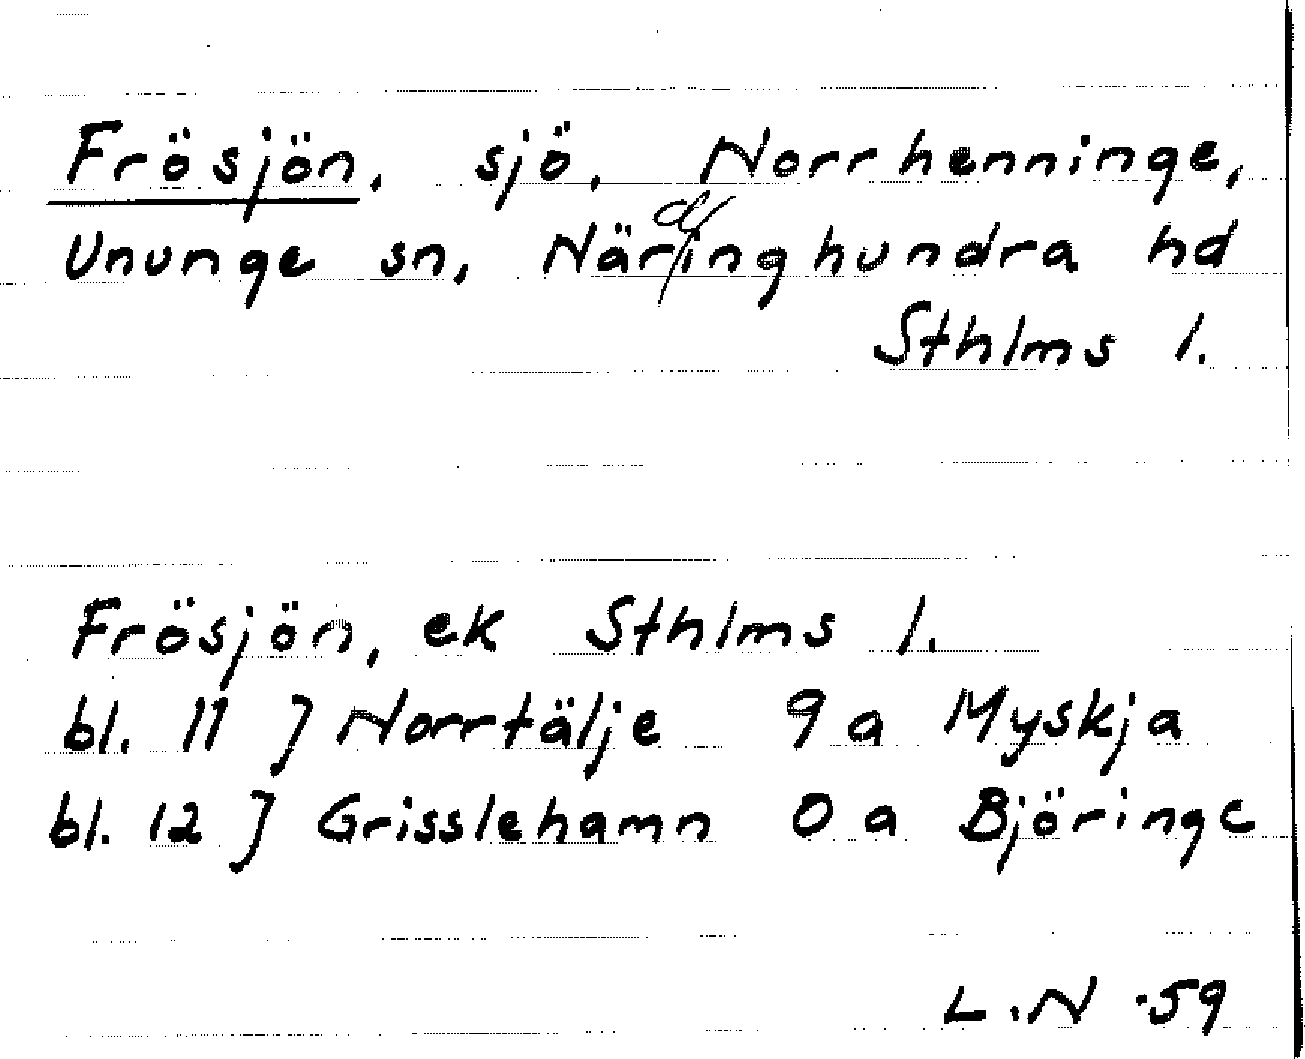 Frösjön, sjö, Norrhenninge,
Ununge sn, Närdinghundra hd
Sthlms l.
Frösjön, ek Sthlms l.
bl. 11 J Norrtälje 9 a Myskja
bl. 12 J Grisslehamn 0 a Björinge
L.N .59